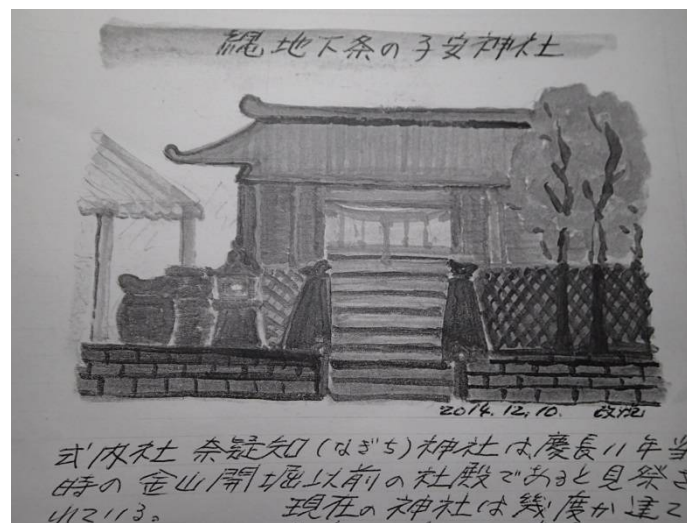 縄地下条の子安神社
2014.12.10.
式内社 奈疑知(なぎち)神社は、慶長11年当
時の金山開堀以前の社殿であると見祭さ
れている。 現在の神社は幾度か建て